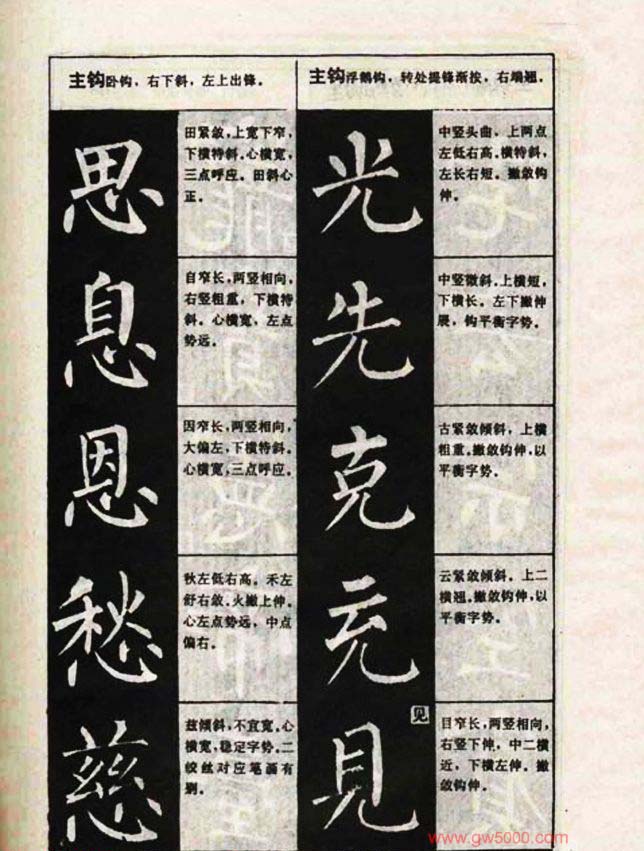 主钩卧钩，右下斜，左上出锋。
思
田紧敛，上宽下窄，
下横特斜。心横宽，
三点呼应。田斜心
正。
息
自窄长，两竖相向，
右竖粗重，下横特
斜。心横宽，左点
势远。
恩
因窄长，两竖相向，
大偏左，下横特斜。
心横宽，三点呼应。
愁
秋左低右高。禾左
舒右敛。火撇上伸。
心左点势远，中点
偏右。
慈
兹倾斜，不宜宽。心
横宽，稳定字势。二
绞丝对应笔画有
别。
主钩浮鹅钩，转处提锋渐按，右端翘。
光
中竖头曲，上两点
左低右高。横特斜，
左长右短。撇敛钩
伸。
先
中竖微斜。上横短，
下横长。左下撇伸
展，钩平衡字势。
克
古紧敛倾斜，上横
粗重。撇敛钩伸，以
平衡字势。
充
云紧敛倾斜。上二
横翘。撇敛钩伸，以
平衡字势。
見
见
目窄长，两竖相向，
右竖下伸，中二横
近，下横左伸。撇
敛钩伸。
www.gw5000.com